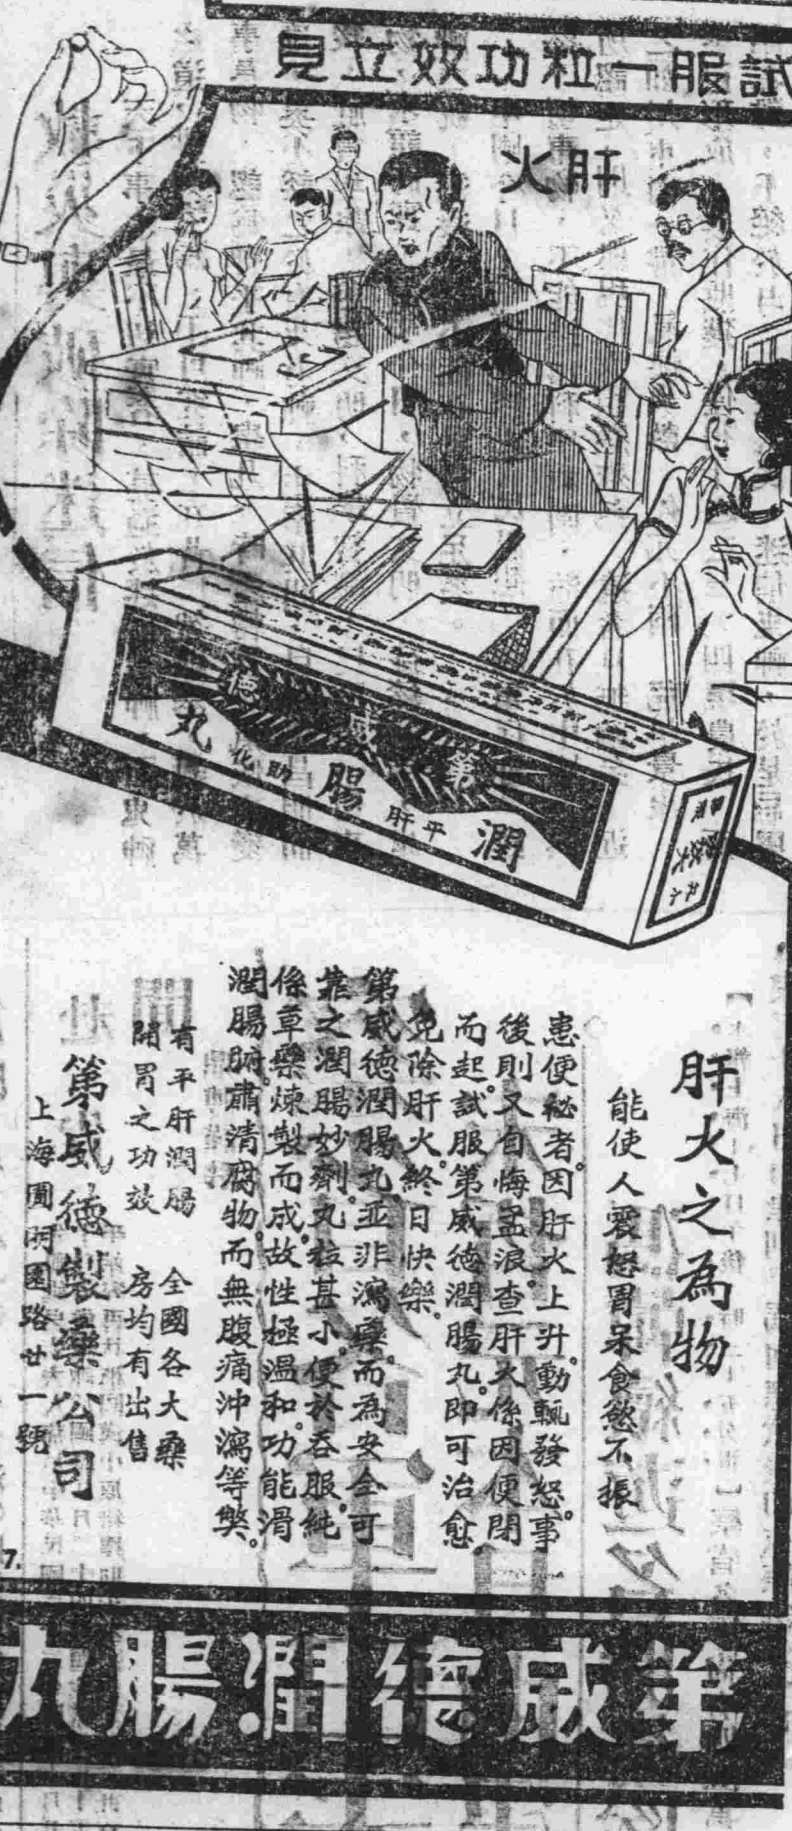 試服一粒功效立見
肝火
第威德
潤腸丸
平肝
助化
肝火之為物
能使人震怒胃呆食慾不振
患便秘者。因肝火上升。動輒發怒。事
後則又自悔孟浪。查肝火係因便閉
而起。試服第威德潤腸丸。即可治愈。
免除肝火。終日快樂。
第威德潤腸丸。並非瀉藥。而為安全可
靠之潤腸妙劑。丸粒甚小。便於吞服。純
係草藥煉製而成。故性極溫和。功能滑
潤腸腑。肅清腐物。而無腹痛沖瀉等弊。
有平肝潤腸
開胃之功效
全國各大藥
房均有出售
第威德製藥公司
上海圓明園路廿一號
7.
第威德潤腸丸